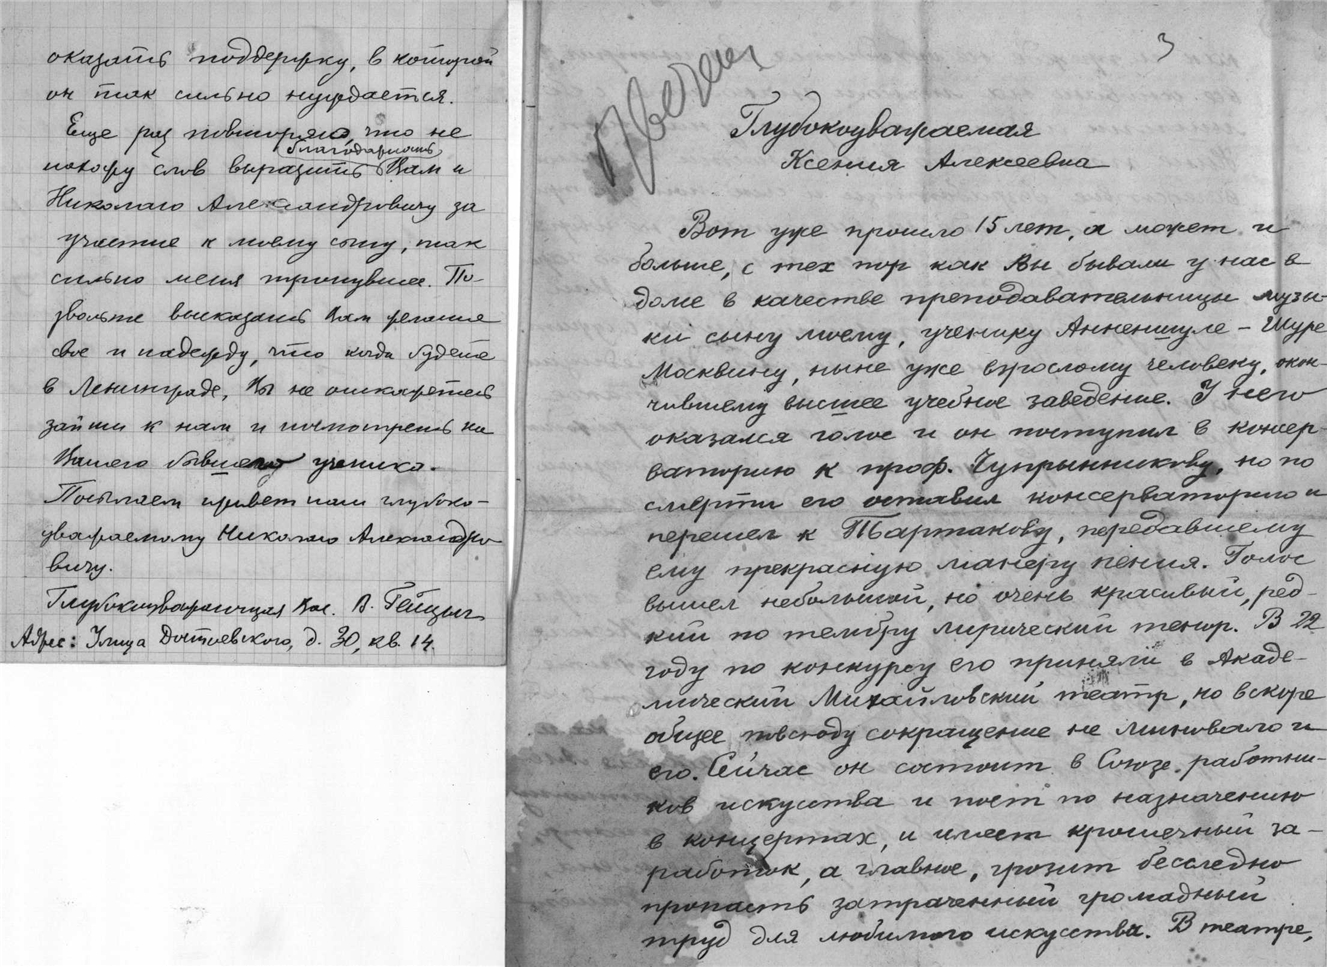 оказать поддержку, в которой
он так сильно нуждается.
Еще раз повторяю, что не
благодарность
нахожу слов выразить Вам и
Николаю Александровичу за
участие к моему сыну, так
сильно меня тронувшее. По-
звольте высказать Вам желание
свое и надежду, что когда будете
в Ленинграде, Вы не откажетесь
зайти к нам и посмотреть на
Вашего бывшего ученика.
Посылаем привет наш глубоко-
уважаемому Николаю Александро-
вичу.
Глубокоуважающая Вас. В.
Адрес: Улица Достоевского, д. 30, кв. 14.
3
Глубокоуважаемая
Ксения Алексеевна
Вот уже прошло 15 лет, а может и
больше, с тех пор как Вы бывали у нас в
доме в качестве преподавательницы музы-
ки сыну моему, ученику Анненшуле – Шуре
Москвину, ныне уже взрослому человеку, окон-
чившему высшее учебное заведение. У него
оказался голос и он поступил в консер-
ваторию к проф. Чупрынникову, но по
смерти его оставил консерваторию и
перешел к Тартакову, передавшему
ему прекрасную манеру пения. Голос
вышел небольшой, но очень красивый, ред-
кий по тембру лирический тенор. В 22
году по конкурсу его приняли в Акаде-
мический Михайловский театр, но вскоре
общее повсюду сокращение не миновало и
его. Сейчас он состоит в Союзе работни-
ков искусства и поет по назначению
в концертах, и имеет крошечный за-
работок, а главное, грозит бесследно
пропасть затраченный громадный
труд для любимого искусства. В театре,